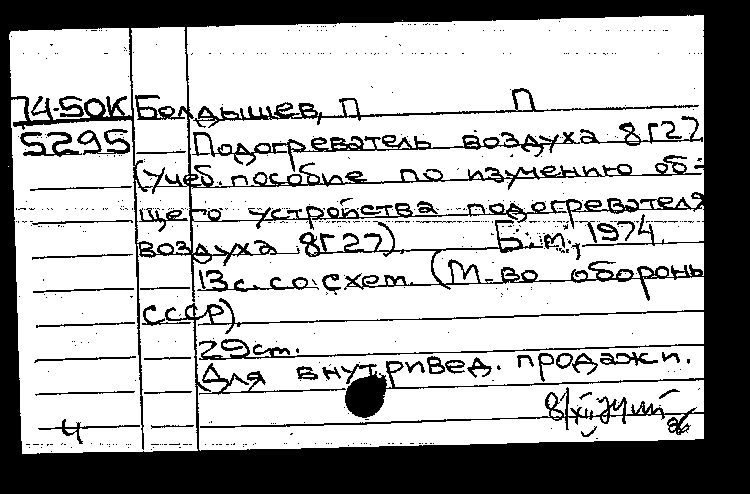 74-50К Болдышев, П П
5295 Подогреватель воздуха 8Г27
(Учеб. пособие по изучению об=
щего устройства подогревателя
воздуха 8Г27). Б.м., 1974.
13с. со схем. (М-во обороны
СССР).
29см.
(Для внутривед. продажи.
8/XII
4 86